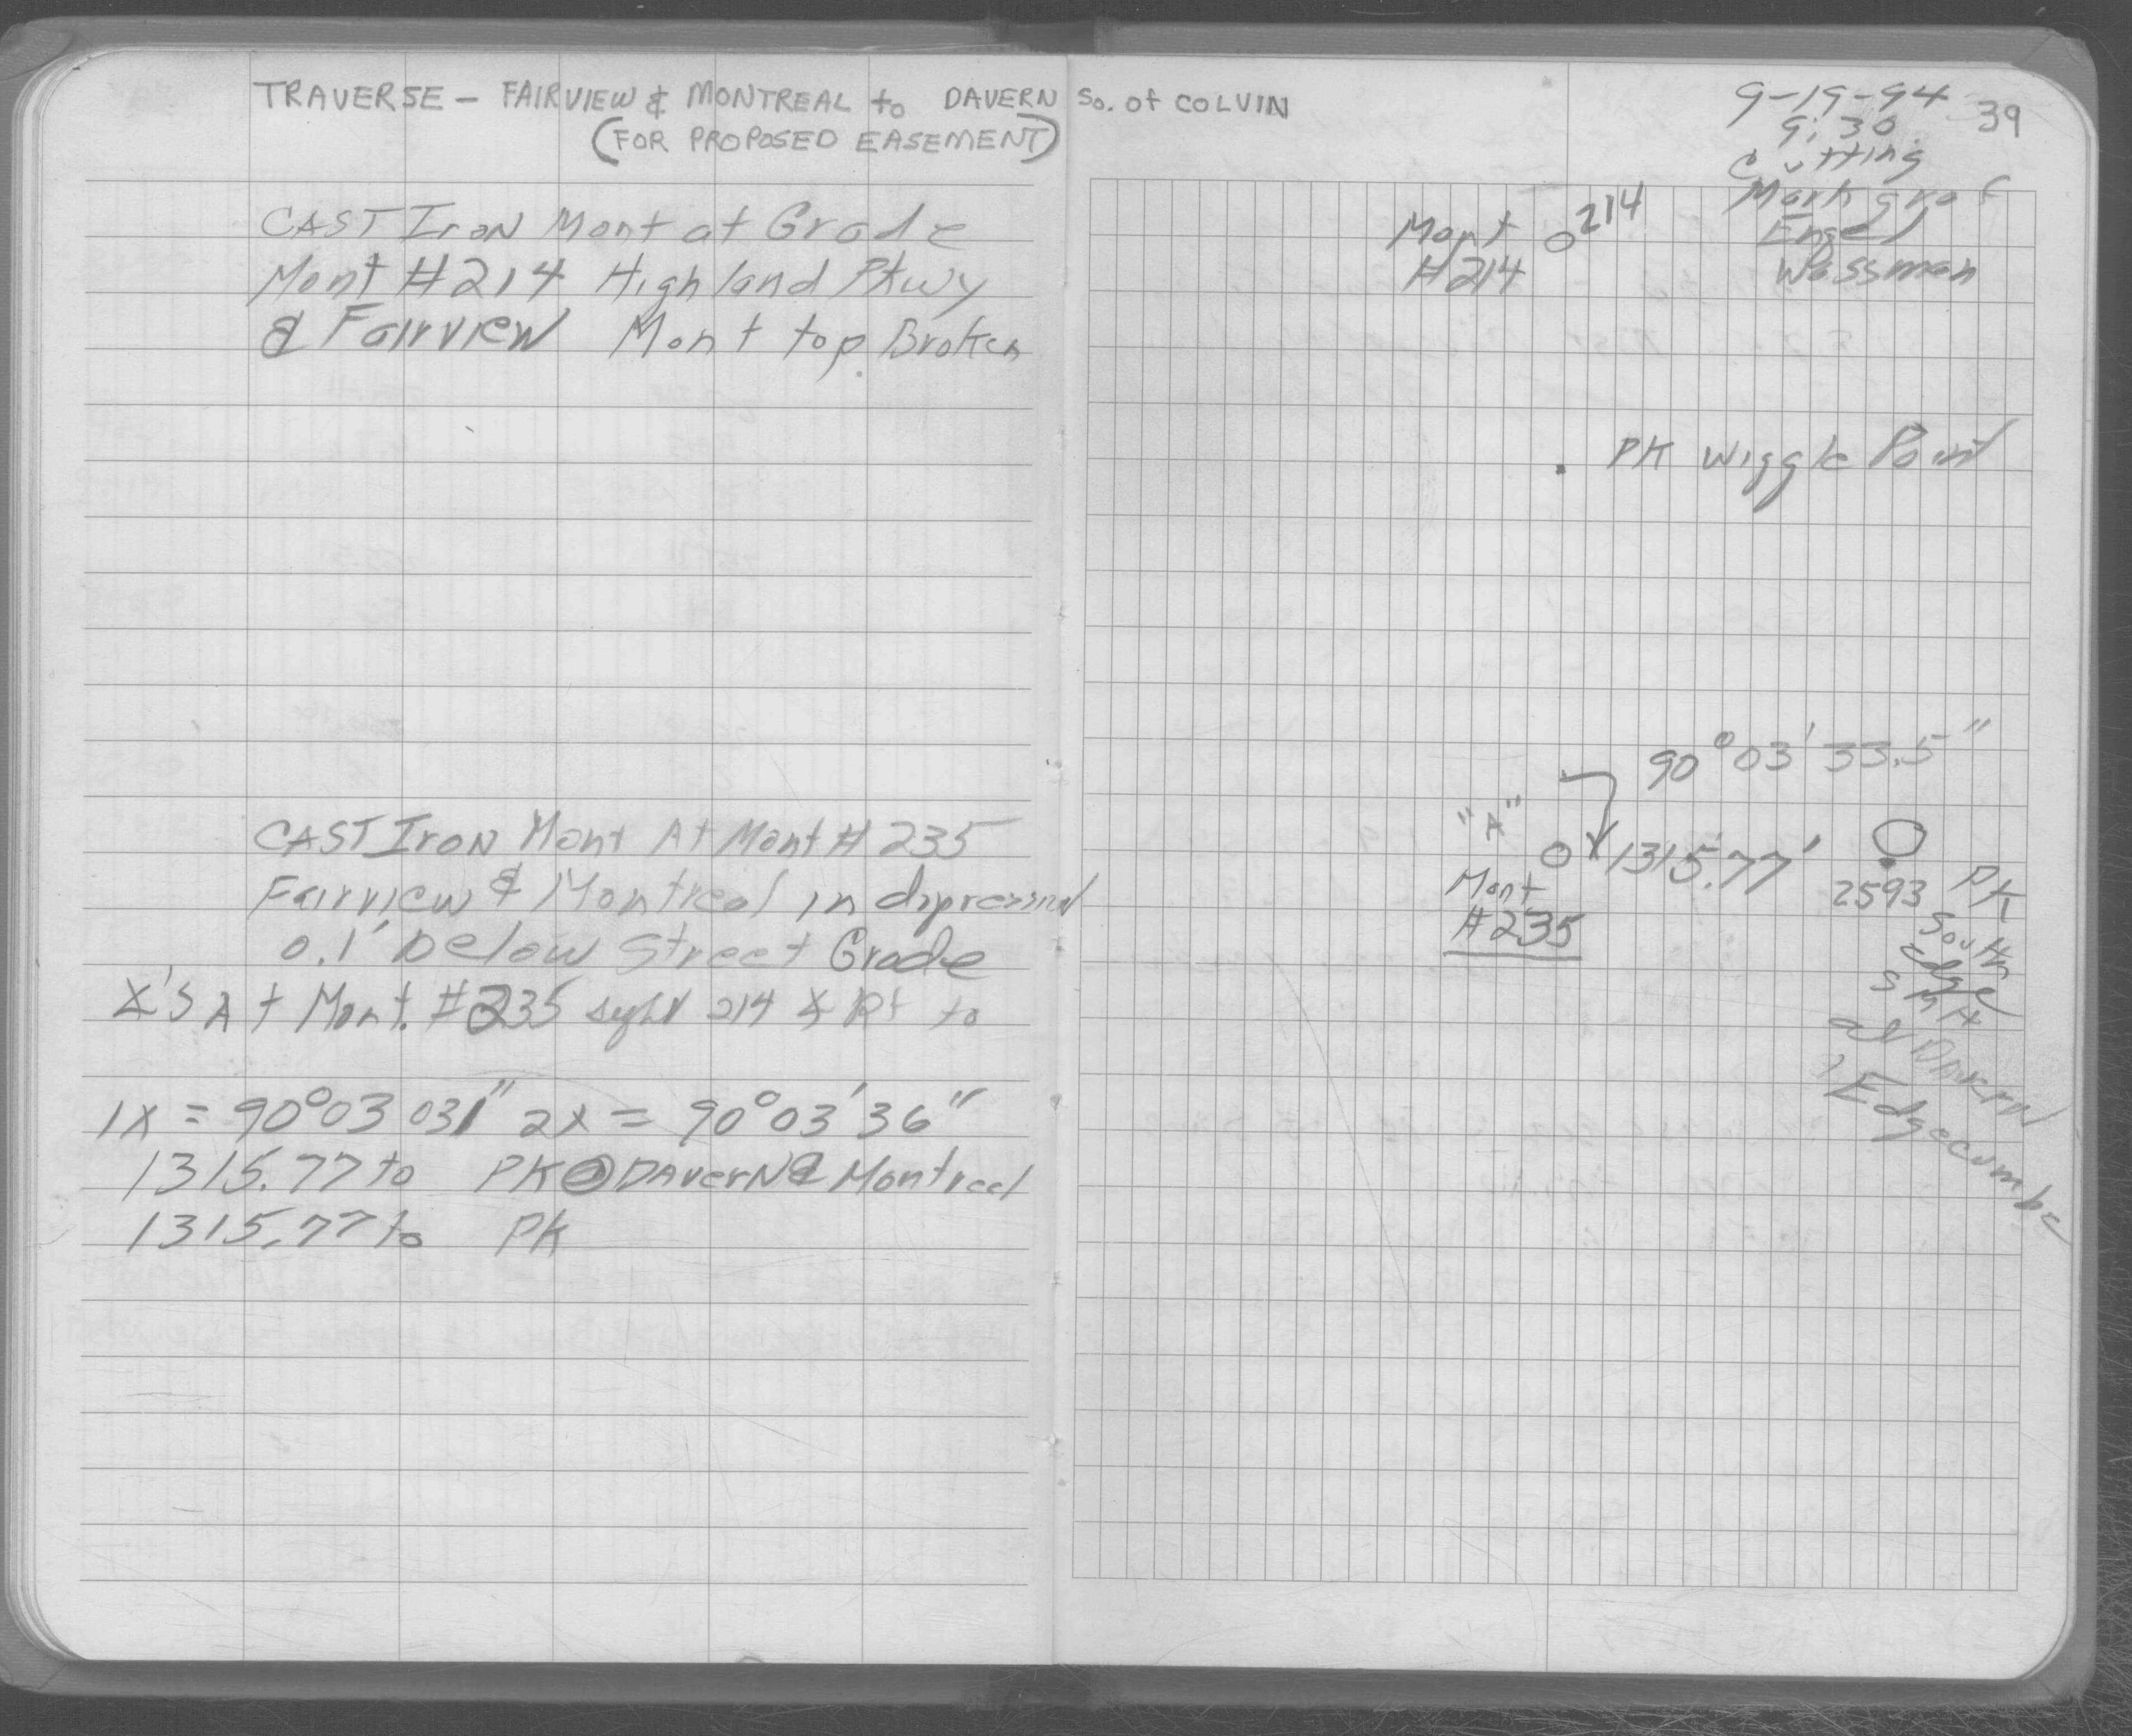 TRAVERSE - FAIRVIEW & MONTREAL to DAVERN So. of COLVIN
(FOR PROPOSED EASEMENT)
CAST Iron Mont at Grade
Mont #214 Highland Pkwy
& Fairview Mont top Broken
CAST Iron Mont At Mont # 235
Fairview & Montreal in
0.1' Below Street Grade
∡'s At Mont. #235 sight 214 ∡ Rt to
1x = 90°03 031" 2x = 90°03'36"
1315.77 to PK @ DAverN & Montreal
1315.77 to PK
9-19-94 39
9:30
Cutting
Markgraf
Engel
Wassman
Mont 214
#214
PK Wiggle Point
90°03'33.5"
"A"
1315.77'
Mont
#235
2593 PK
South
Edge
S M H
at Davern
& Edgecumbe